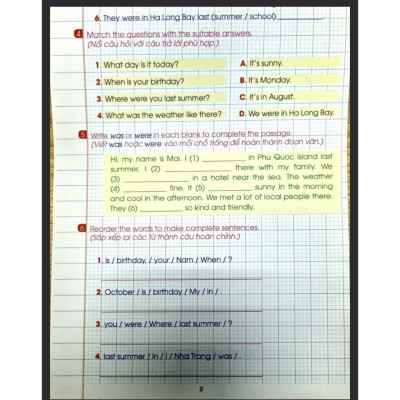 6. They were in Ha Long Bay last (summer / school) ____________
4 Match the questions with the suitable answers.
(Nối câu hỏi với câu trả lời phù hợp.)
1. What day is it today?
A. It's sunny.
2. When is your birthday?
B. It's Monday.
3. Where were you last summer?
C. It's in August.
4. What was the weather like there?
D. We were in Ha Long Bay.
5 Write was or were in each blank to complete the passage.
(Viết was hoặc were vào mỗi chỗ trống để hoàn thành đoạn văn.)
Hi, my name is Mai. I (1) __________ in Phu Quoc island last
summer. I (2) __________ there with my family. We
(3) __________ in a hotel near the sea. The weather
(4) __________ fine. It (5) __________ sunny in the morning
and cool in the afternoon. We met a lot of local people there.
They (6) __________ so kind and friendly.
6 Reorder the words to make complete sentences.
(Sắp xếp lại các từ thành câu hoàn chỉnh.)
1. is / birthday, / your / Nam / When / ?
2. October / is / birthday / My / in / .
3. you / were / Where / last summer / ?
4. last summer / in / I / Nha Trang / was / .
2